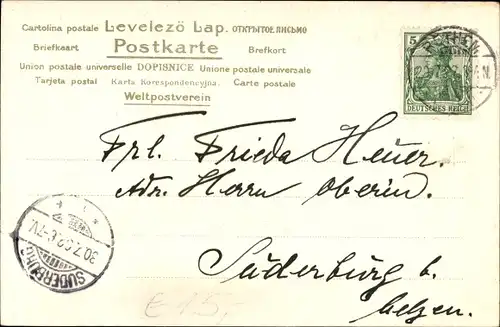 Cartolina postale Levelezö Lap. ОТКРЫТОЕ ПИСЬМО
Briefkaart Postkarte Brefkort
Union postale universelle DOPISNICE Unione postale universale
Tarjeta postal Karta Korespondencyjna. Carte postale
Weltpostverein
5
DEUTSCHES REICH
Frl. Frieda Heuer.
Adr. Herrn Oberin.
Suderburg b.
Uelzen.
SUDERBURG
30.7. 6-7V.
E 15,-